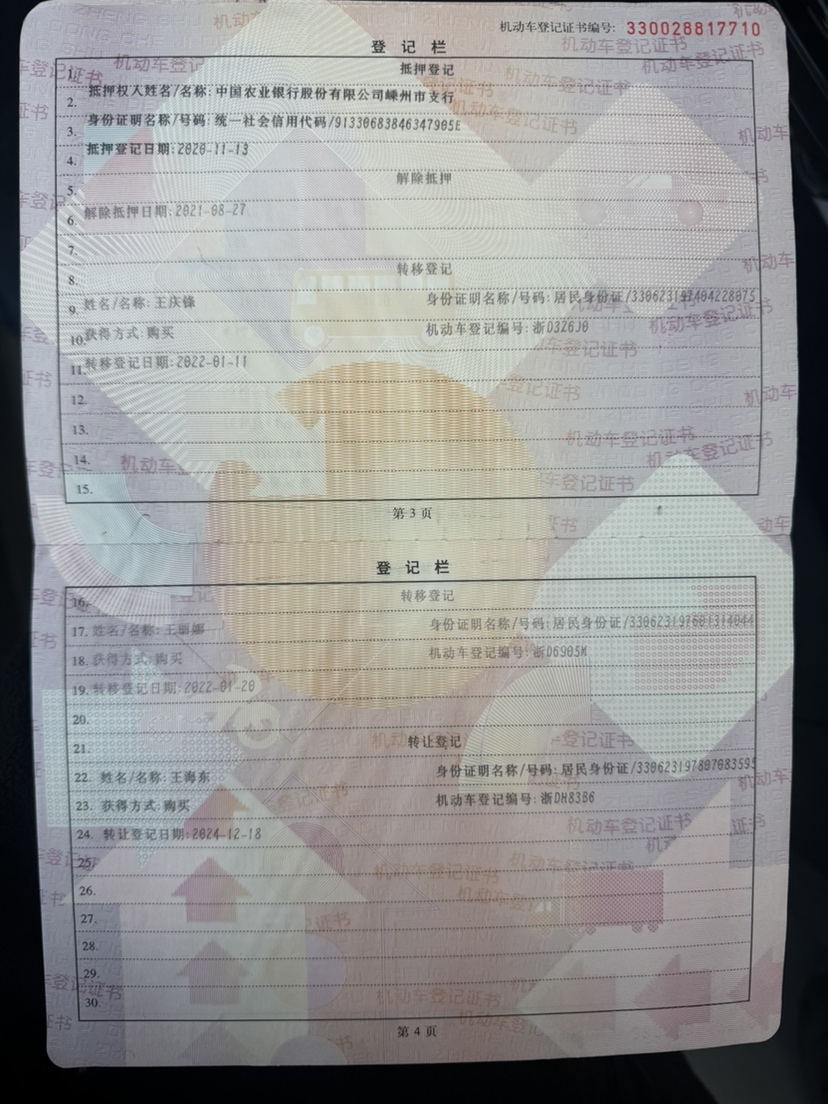 机动车登记证书编号: 330028817710
登 记 栏
1. 抵押登记
2. 抵押权人姓名/名称:中国农业银行股份有限公司嵊州市支行
3. 身份证明名称/号码:统一社会信用代码/91330683846347905E
4. 抵押登记日期:2020-11-13
5. 解除抵押
6. 解除抵押日期:2021-08-27
7.
8. 转移登记
9. 姓名/名称:王庆锋 身份证明名称/号码:居民身份证/330623197404228075
10. 获得方式:购买 机动车登记编号:浙D3Z6J0
11. 转移登记日期:2022-01-11
12.
13.
14.
15.
第 3 页
登 记 栏
16. 转移登记
17. 姓名/名称:王丽娜 身份证明名称/号码:居民身份证/
18. 获得方式:购买 机动车登记编号:浙D6905M
19. 转移登记日期:2022-01-20
20.
21. 转让登记
22. 姓名/名称:王海东 身份证明名称/号码:居民身份证/330623197807083595
23. 获得方式:购买 机动车登记编号:浙DH83B6
24. 转让登记日期:2024-12-18
25.
26.
27.
28.
29.
30.
第 4 页